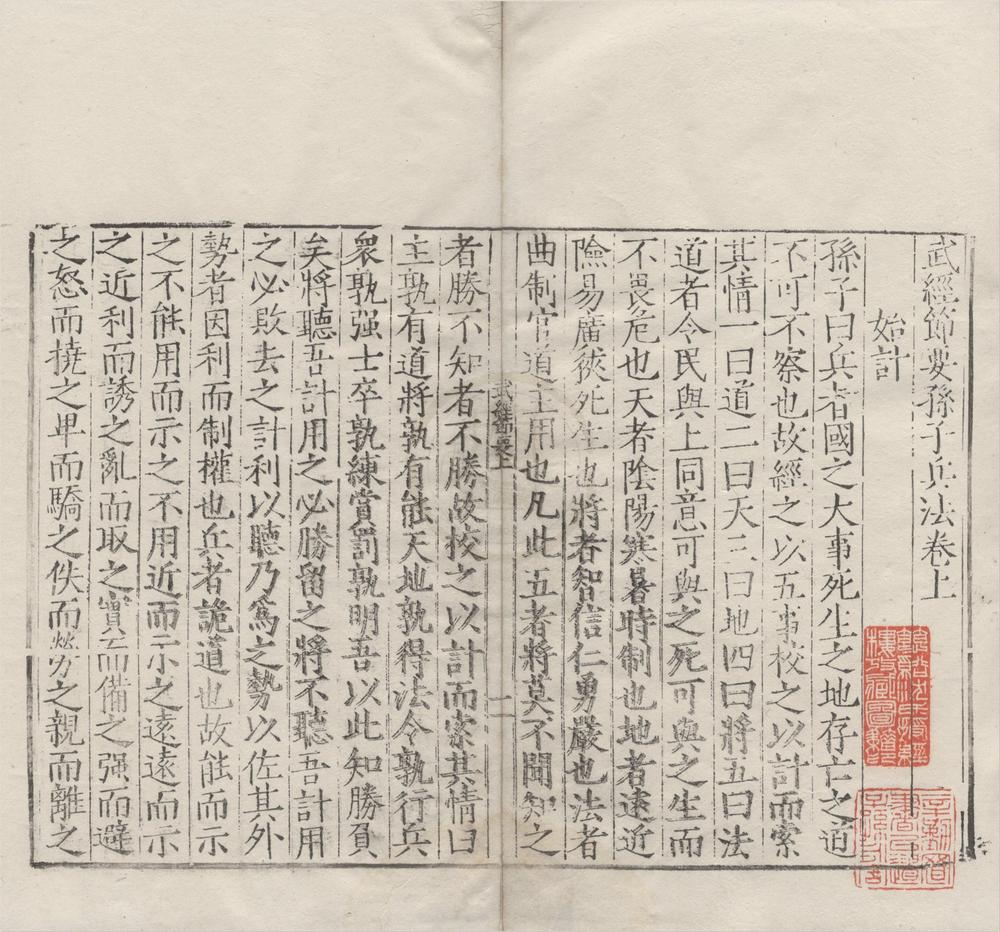 武經節要孫子兵法卷上
始計
孫子曰兵者國之大事死生之地存亡之道
不可不察也故經之以五事校之以計而索
其情一曰道二曰天三曰地四曰將五曰法
道者令民與上同意可與之死可與之生而
不畏危也天者陰陽寒暑時制也地者遠近
險易廣狹死生也將者智信仁勇嚴也法者
曲制官道主用也凡此五者將莫不聞知之
武經節要上
一
者勝不知者不勝故校之以計而索其情曰
主孰有道將孰有能天地孰得法令孰行兵
衆孰强士卒孰練賞罰孰明吾以此知勝負
矣將聽吾計用之必勝留之將不聽吾計用
之必敗去之計利以聽乃爲之勢以佐其外
勢者因利而制權也兵者詭道也故能而示
之不能用而示之不用近而示之遠遠而示
之近利而誘之亂而取之實而備之强而避
之怒而撓之卑而驕之佚而勞之親而離之